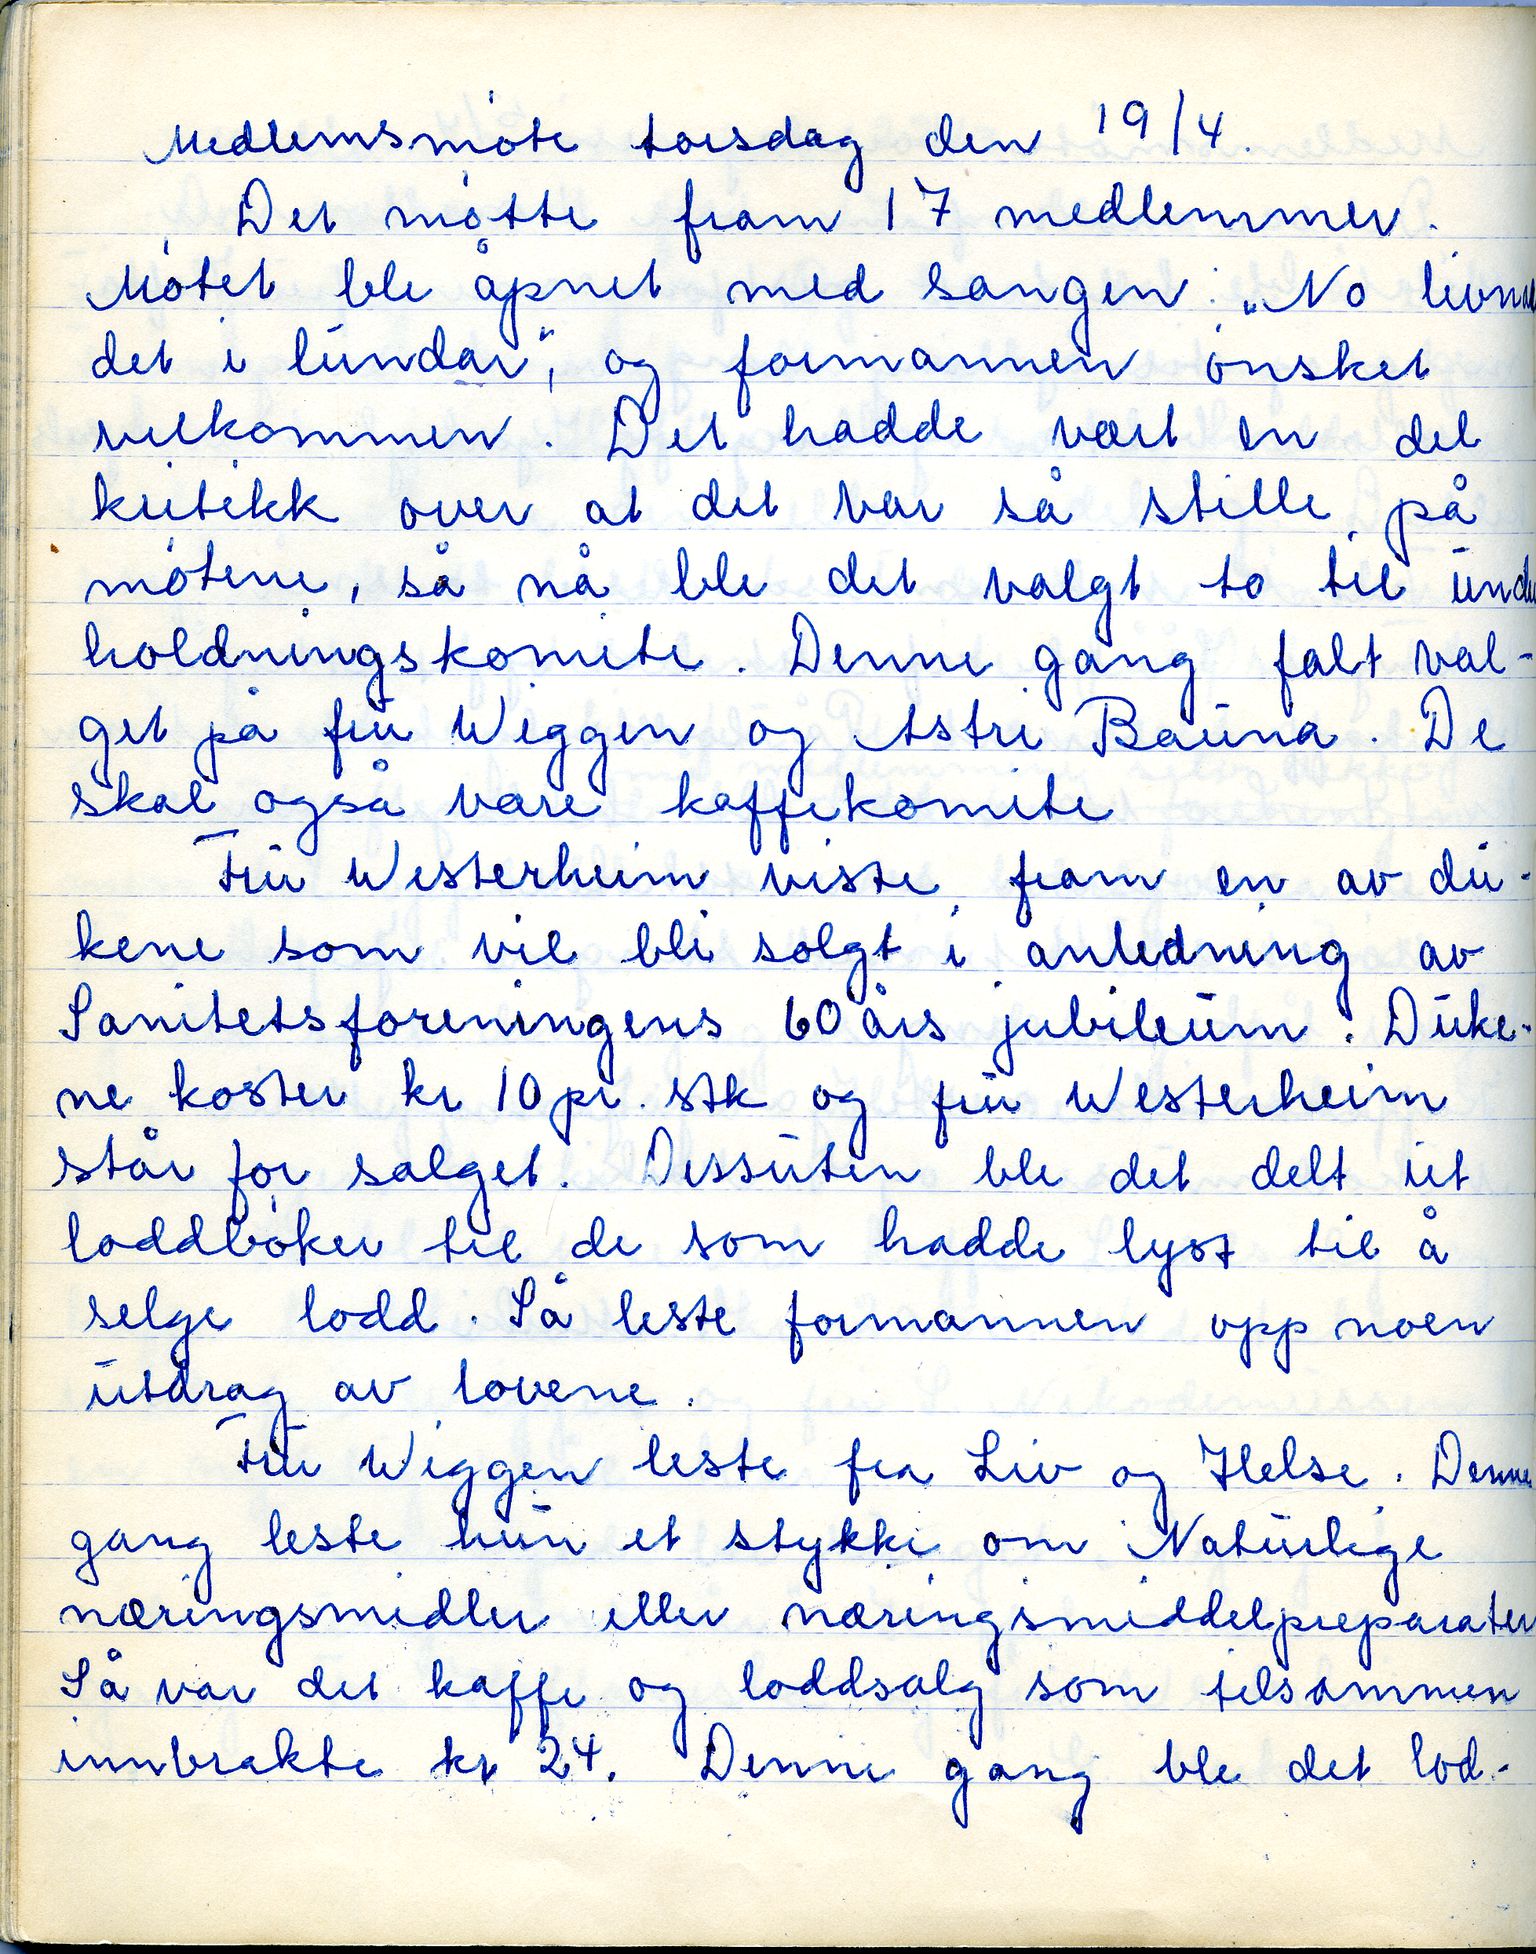 Medlemsmøte torsdag den 19/4.
Det møtte fram 17 medlemmer.
Møtet ble åpnet med sangen: „No livnar
det i lundar", og formannen ønsket
velkommen. Det hadde vært en del
kritikk over at det var så stille på
møtene, så nå ble det valgt to til under
holdningskomite. Denne gang falt val-
get på fru Wiggen og Astri Bauna. De
skal også være kaffekomite
Fru Westerheim viste fram en av du-
kene som vil bli solgt i anledning av
Sanitetsforeningens 60 års jubileum. Duke-
ne koster kr 10 pr. stk og fru Westerheim
står for salget. Dessuten ble det delt ut
loddbøker til de som hadde lyst til å
selge lodd. Så leste formannen opp noen
utdrag av lovene.
Fru Wiggen leste fra Liv og Helse. Denne
gang leste hun et stykke om Naturlige
næringsmidler eller næringsmiddelpreparater
Så var det kaffe og loddsalg som tilsammen
innbrakte kr 24. Denne gang ble det lod-